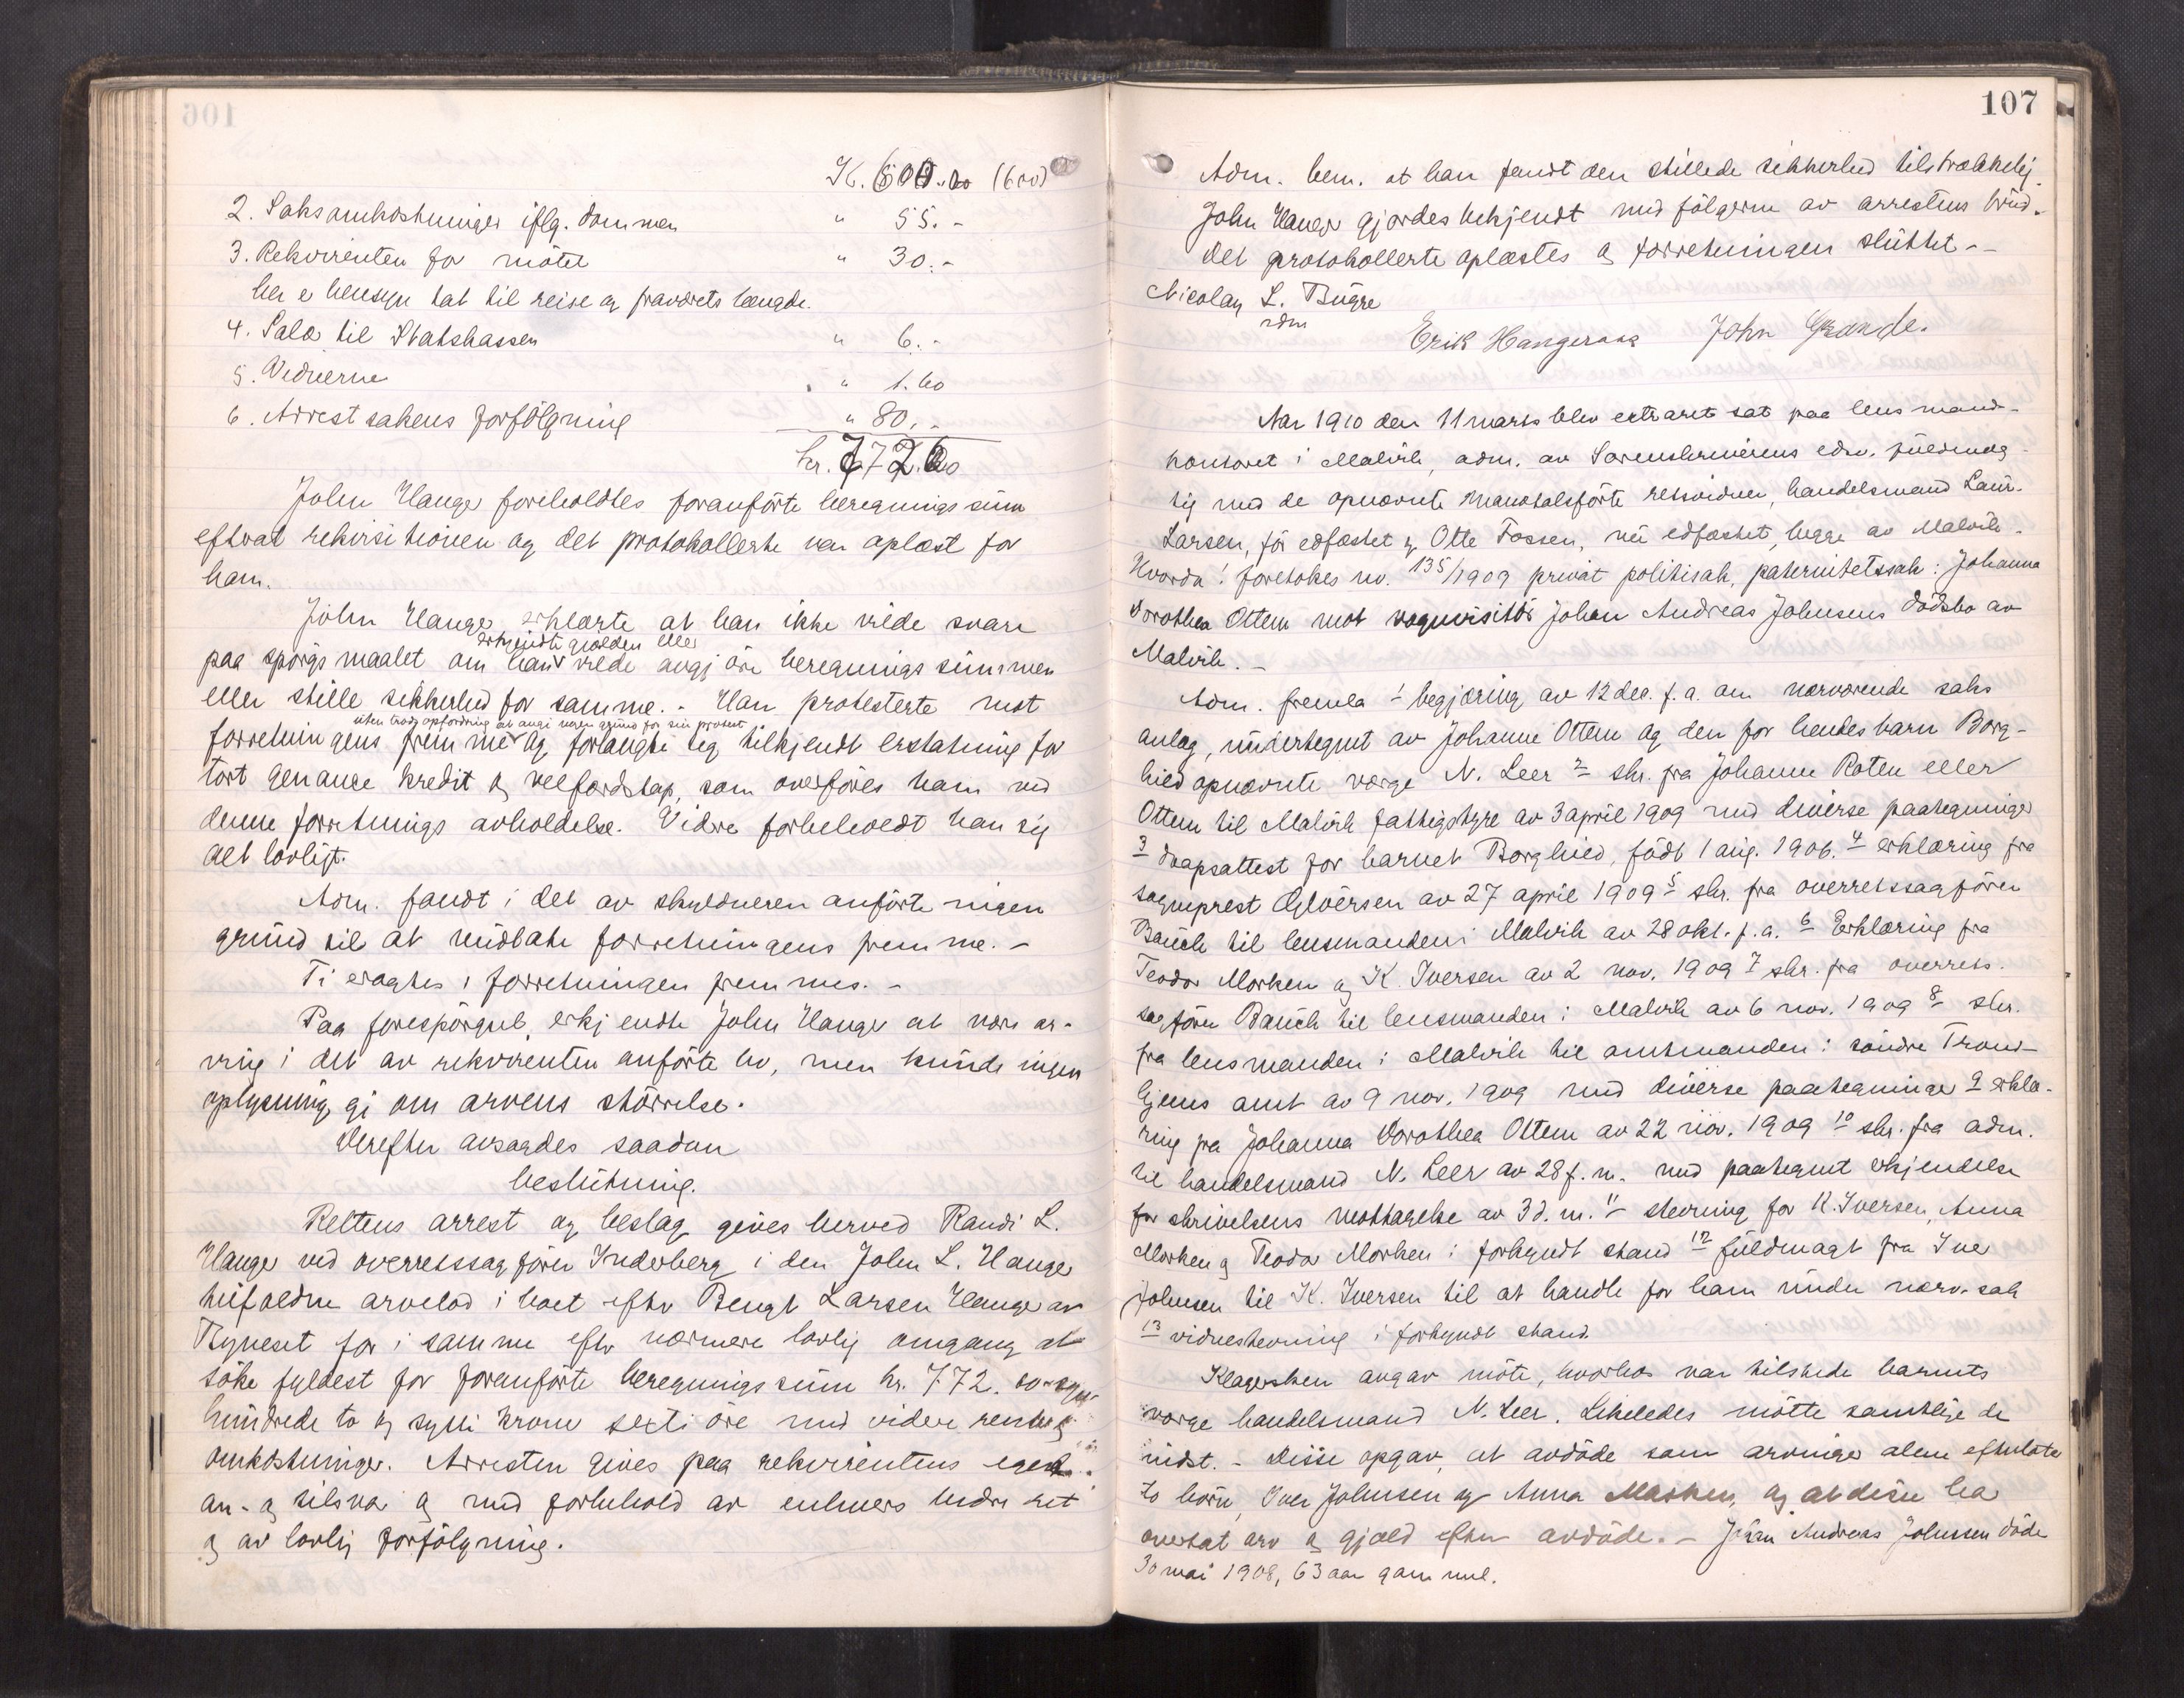 Kr. 600.00 (600)
2. Saksomkostninger iflg. dommen " 55.-
3. Rekvirenten for mötet " 30.-
her er hensyn tat til reise og fraværets længde.
4. Salær til Statskassen " 6.-
5. Vidnerne " 1.60
6. Arrestsakens forfölgning " 80.-
kr. 772.60
John Hauger foreholdtes foranförte beregningssum
efterat rekvisitionen og det protokollerte var oplæst for
ham.
John Hauger erklærte at han ikke vilde svare
erkjendte gjælden eller
paa spörgsmaalet om han vilde avgjöre beregningssummen
eller stille sikkerhed for samme. - Han protesterte mot
uten trods opfordring at angi noen grund for sin protest
forretningens fremme og forlangte sig tilkjendt erstatning for
tort genauge kredit og velfærdstap, som overföres ham ved
denne forretnings avholdelse. Videre forbeholdt han sig
alt lovligt.
Adm. fandt i det av skyldneren anförte ingen
grund til at undlate forretningens fremme. -
Ti eragtes: forretningen fremmes. -
Paa forespörgsel erkjendte John Hauger at være ar-
ving i det av rekvirenten anförte bo, men kunde ingen
oplysning gi om arvens störrelse.
Derefter avsagdes saadan
beslutning.
Rettens arrest og beslag gives herved Randi L.
Hauger ved overretssagförer Inderberg i den John L. Hauger
tilfaldne arvelod i boet efter Bengt Larsen Hauger av
Bynesset for i samme efter nærmere lovlig omgang at
söke fyldest for foranförte beregningssum kr. 772.60 - syv
hundrede to og sytti kroner sexti öre med videre renter og
omkostninger. Arresten gives paa rekvirentens eget
an- og tilsvar og med forbehold av enhvers bedre ret
og av lovlig forfölgning.
107
Adm. bem. at han fandt den stillede sikkerhed tilstrækkelig.
John Hauger gjordes bekjendt med fölgerne av arrestens brud.
Det protokollerte oplæstes og forretningen sluttet. -
Nicolay L. Bugge
adm
Erik Hangeraas John Grande.
Aar 1910 den 11 marts blev extraret sat paa lensmand-
kontoret i Malvik, adm. av Sorenskriverens edsv. fuldmæg-
tig med de opnævnte mantalsförte retsvidner, handelsmand Laur.
Larsen, för edfæstet og Otte Fossen, nu edfæstet, begge av Malvik.
Hvorda: foretokes nr. 135/1909 privat politisak, paternitetssak: Johanna
Dorothea Ottem mot vognvisitör Johan Andreas Johnsens dödsbo av
Malvik. -
Adm. fremla 1 begjæring av 12 dec. f.a. om nærværende saks
anlæg, undertegnet av Johanne Ottem og den for hendes barn Borg-
hild opnævnte værge N. Leer 2 skr. fra Johanne Roten eller
Ottem til Malvik fattigstyre av 3 april 1909 med diverse paategninger
3 daapsattest for barnet Borghild, födt 1 aug. 1906. 4 erklæring fra
sogneprest Gløersen av 27 april 1909 5 skr. fra overretssagförer
Bauck til lensmanden i Malvik av 28 okt. f.a. 6 Erklæring fra
Teodor Morken og K. Iversen av 2 nov. 1909 7 skr. fra overrets.
sagförer Bauck til lensmanden i Malvik av 6 nov. 1909 8 skr.
fra lensmanden i Malvik til amtmanden i söndre Trond-
hjems amt av 9 nov. 1909 med diverse paategninger 9 erklæ-
ring fra Johanna Dorothea Ottem av 22 nov. 1909 10 skr. fra adm.
til handelsmand N. Leer av 28 f.m. med paategnet erkjendelse
for skrivelsens mottagelse av 3 d.m. 11 stevning for K. Iversen, Anna
Morken og Teodor Morken i forkyndt stand 12 fuldmagt fra Iver
Johnsen til K. Iversen til at handle for ham under nærv. sak
13 vidnestevning i forkyndt stand.
Klagersken avgav möte, hvorhos var tilstede barnets
værge handelsmand N. Leer. Likeledes mötte samtlige de
indst. - Disse opgav, at avdöde som arvinger alene efterlot
to börn, Iver Johnsen og Anna Morken, og at disse har
overtat arv og gjæld efter avdöde. - Johan Andreas Johnsen döde
30 mai 1908, 63 aar gammel.